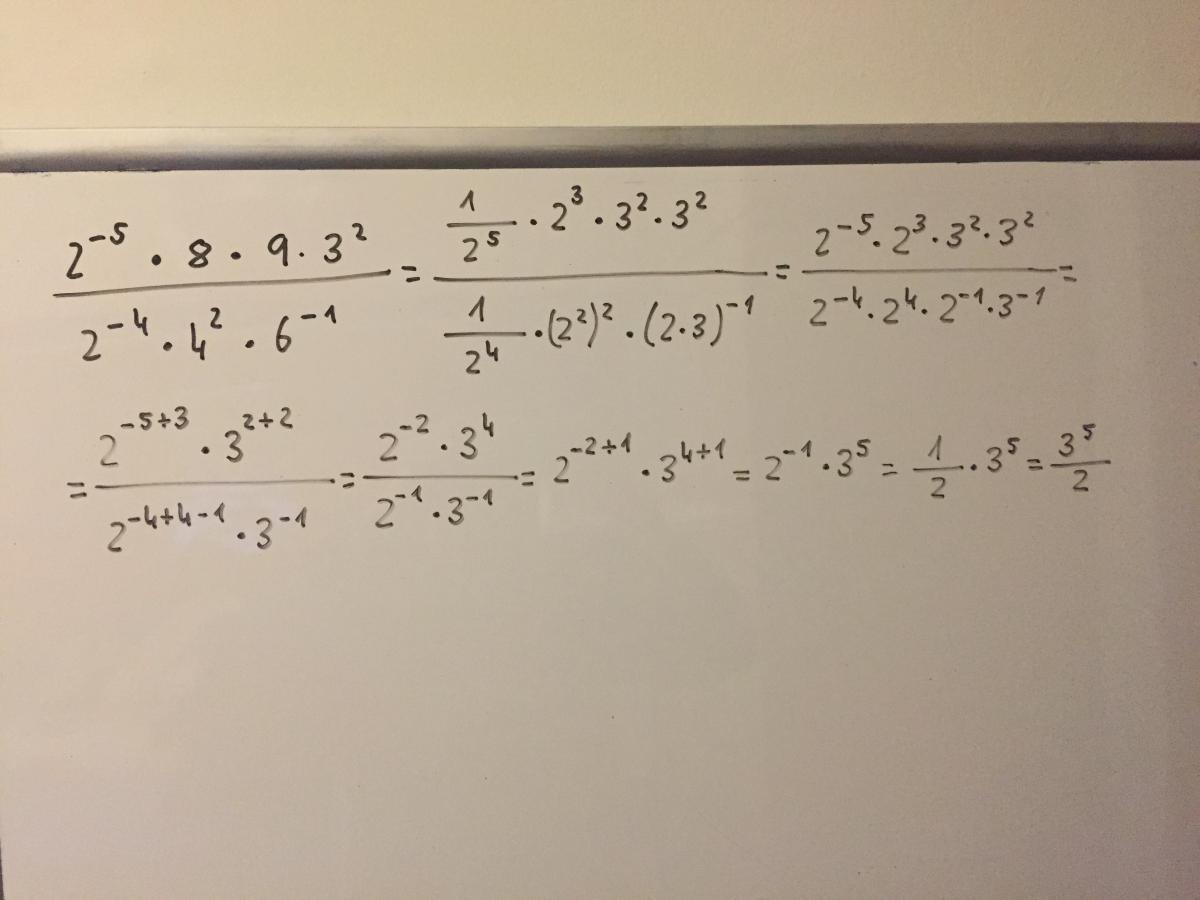 \frac{2^{-5} \cdot 8 \cdot 9 \cdot 3^2}{2^{-4} \cdot 4^2 \cdot 6^{-1}} = \frac{\frac{1}{2^5} \cdot 2^3 \cdot 3^2 \cdot 3^2}{\frac{1}{2^4} \cdot (2^2)^2 \cdot (2 \cdot 3)^{-1}} = \frac{2^{-5} \cdot 2^3 \cdot 3^2 \cdot 3^2}{2^{-4} \cdot 2^4 \cdot 2^{-1} \cdot 3^{-1}} =
= \frac{2^{-5+3} \cdot 3^{2+2}}{2^{-4+4-1} \cdot 3^{-1}} = \frac{2^{-2} \cdot 3^4}{2^{-1} \cdot 3^{-1}} = 2^{-2+1} \cdot 3^{4+1} = 2^{-1} \cdot 3^5 = \frac{1}{2} \cdot 3^5 = \frac{3^5}{2}